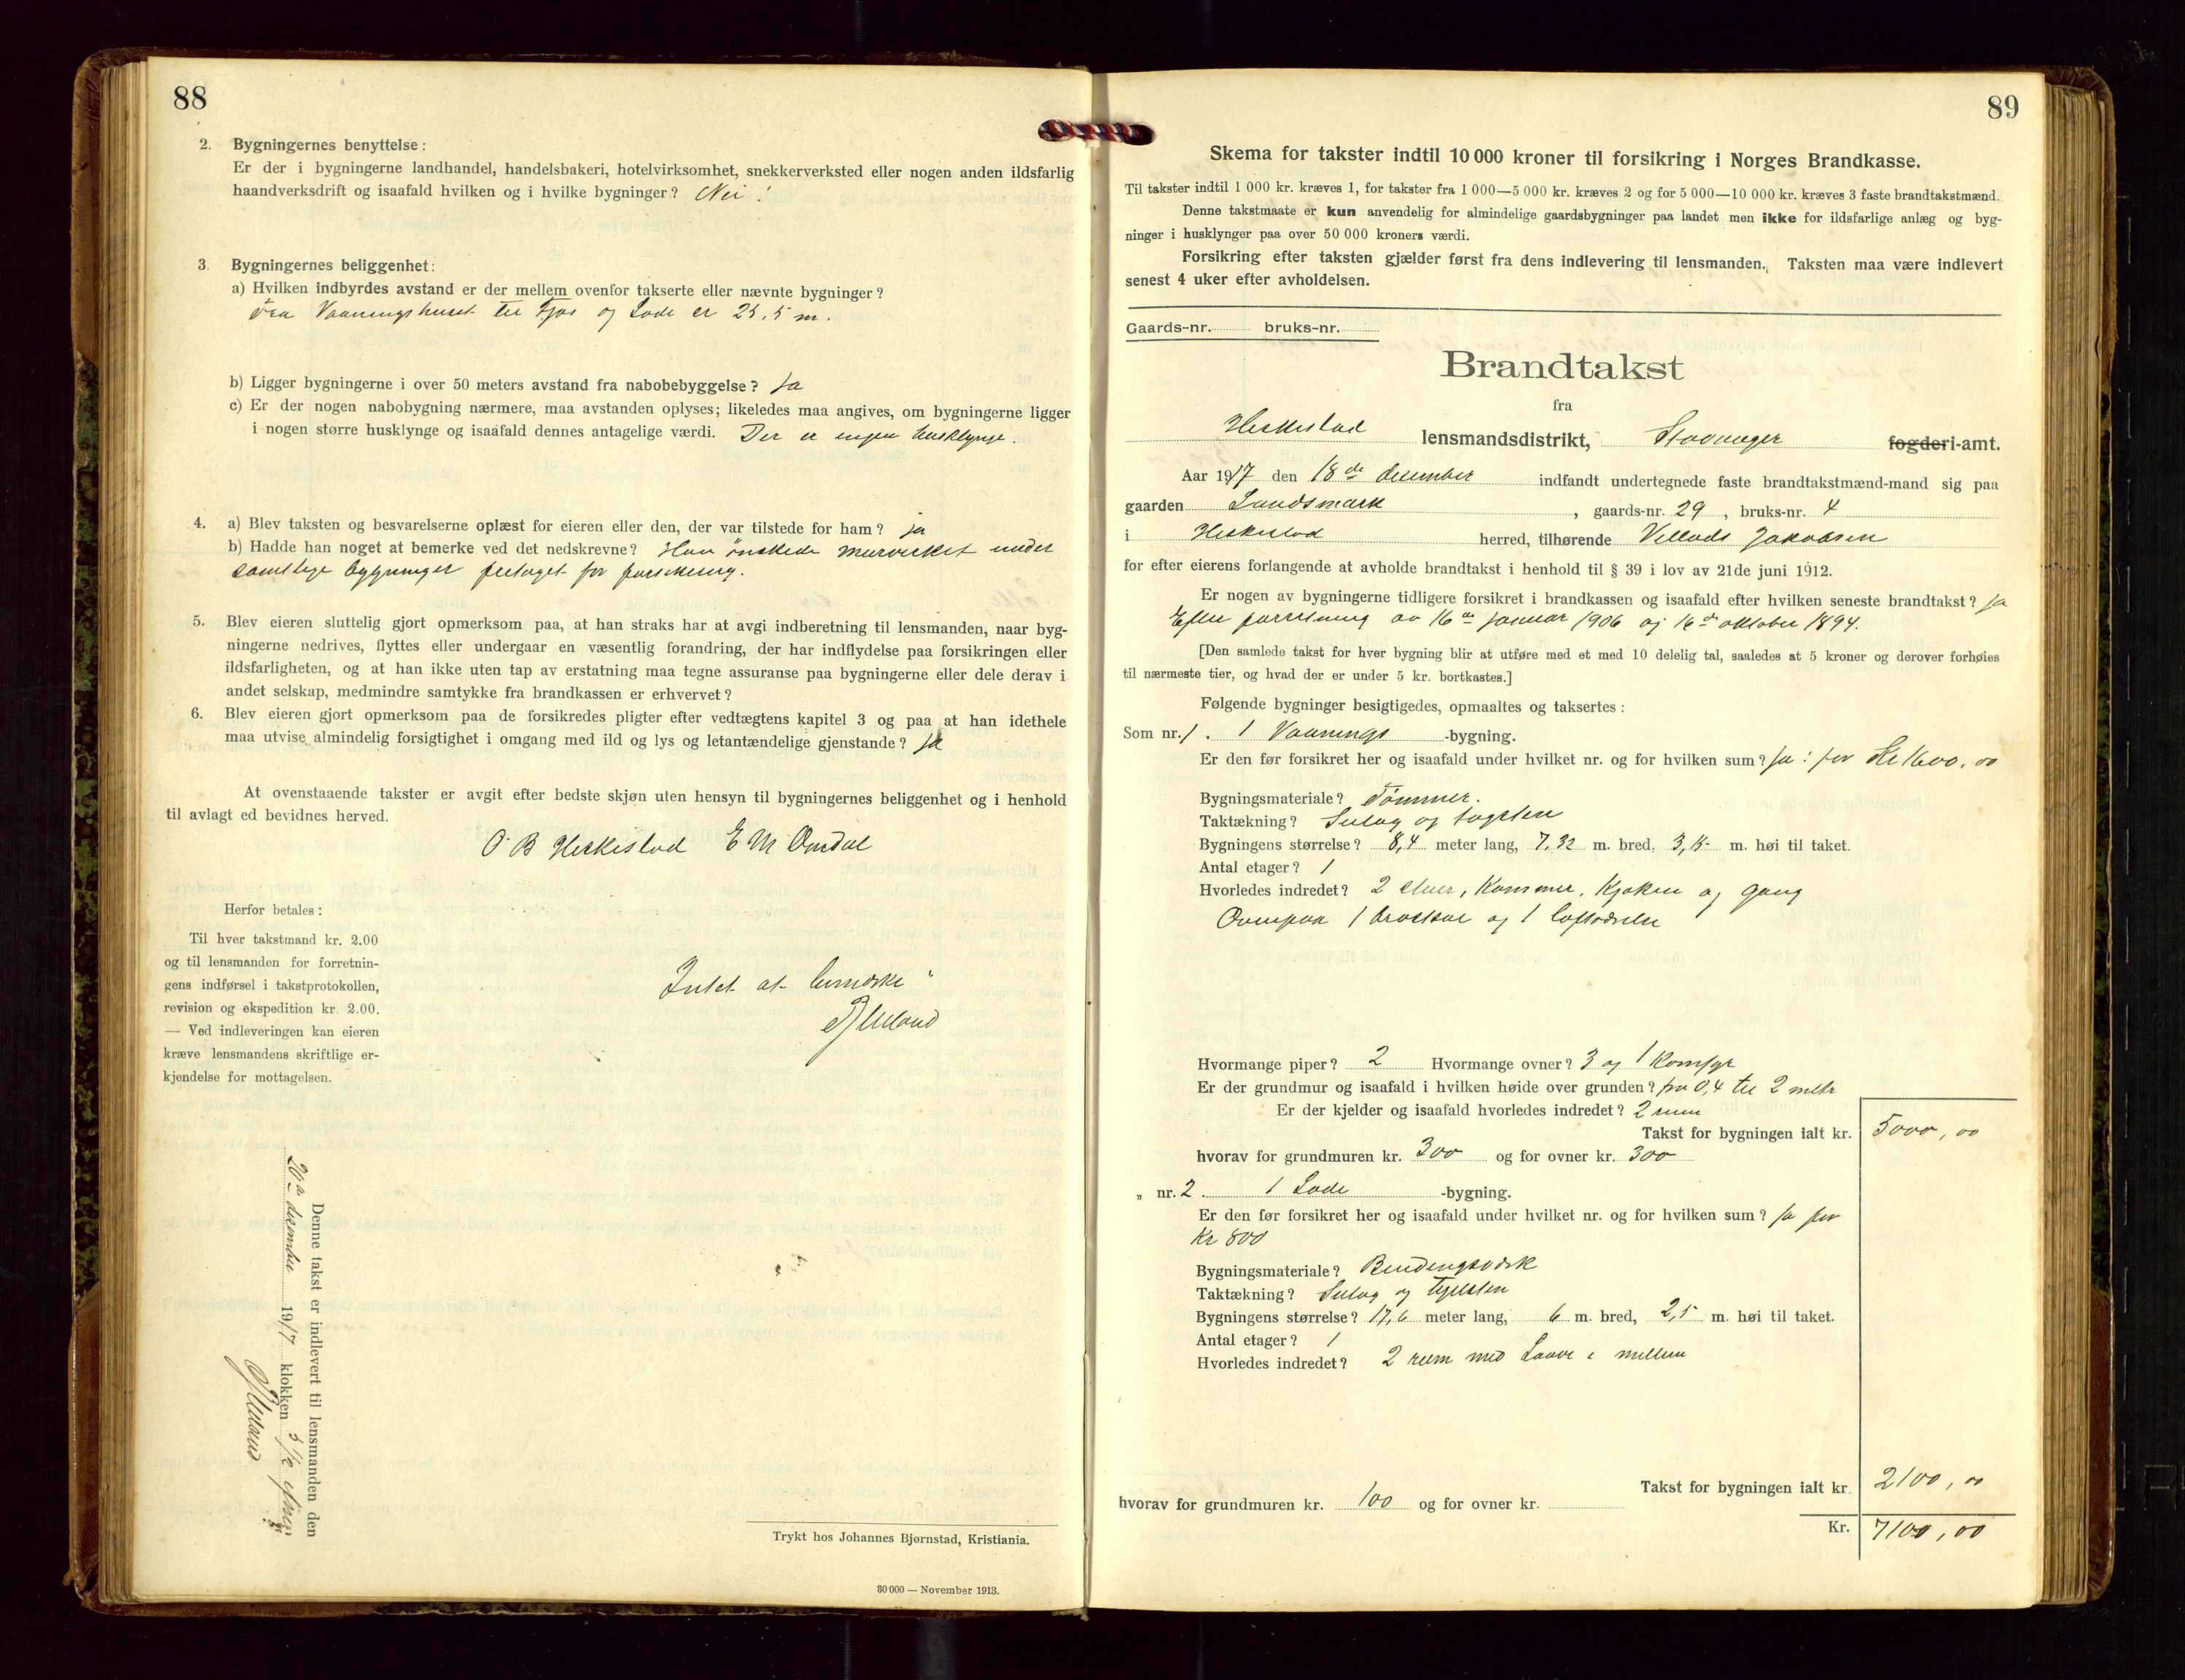 88
2. Bygningernes benyttelse:
Er der i bygningerne landhandel, handelsbakeri, hotelvirksomhet, snekkerverksted eller nogen anden ildsfarlig
haandverksdrift og isaafald hvilken og i hvilke bygninger? Nei!
3. Bygningernes beliggenhet:
a) Hvilken indbyrdes avstand er der mellem ovenfor takserte eller nævnte bygninger?
Fra Vaaningshuset til Fjøs og Lade er 25,5 m.
b) Ligger bygningerne i over 50 meters avstand fra nabobebyggelse? Ja
c) Er der nogen nabobygning nærmere, maa avstanden oplyses; likeledes maa angives, om bygningerne ligger
i nogen større husklynge og isaafald dennes antagelige værdi. Der er ingen husklynge.
4. a) Blev taksten og besvarelserne oplæst for eieren eller den, der var tilstede for ham? ja
b) Hadde han noget at bemerke ved det nedskrevne? Han ønskede murverket under
samtlige bygninger fritaget for forsikring.
5. Blev eieren sluttelig gjort opmerksom paa, at han straks har at avgi indberetning til lensmanden, naar byg-
ningerne nedrives, flyttes eller undergaar en væsentlig forandring, der har indflydelse paa forsikringen eller
ildsfarligheten, og at han ikke uten tap av erstatning maa tegne assuranse paa bygningerne eller dele derav i
andet selskap, medmindre samtykke fra brandkassen er erhvervet?
6. Blev eieren gjort opmerksom paa de forsikredes pligter efter vedtægtens kapitel 3 og paa at han idethele
maa utvise almindelig forsigtighet i omgang med ild og lys og letantændelige gjenstande? ja
At ovenstaaende takster er avgit efter bedste skjøn uten hensyn til bygningernes beliggenhet og i henhold
til avlagt ed bevidnes herved.
O B Heskestad E M Omdal
Herfor betales:
Til hver takstmand kr. 2.00
og til lensmanden for forretnin-
gens indførsel i takstprotokollen,
revision og ekspedition kr. 2.00.
— Ved indleveringen kan eieren
kræve lensmandens skriftlige er-
kjendelse for mottagelsen.
Intet at bemærke
Denne takst er indlevert til lensmanden den
20de december 1917 klokken
Trykt hos Johannes Bjørnstad, Kristiania.
30 000 — November 1913.
89
Skema for takster indtil 10 000 kroner til forsikring i Norges Brandkasse.
Til takster indtil 1 000 kr. kræves 1, for takster fra 1 000—5 000 kr. kræves 2 og for 5 000—10 000 kr. kræves 3 faste brandtakstmænd.
Denne takstmaate er kun anvendelig for almindelige gaardsbygninger paa landet men ikke for ildsfarlige anlæg og byg-
ninger i husklynger paa over 50 000 kroners værdi.
Forsikring efter taksten gjælder først fra dens indlevering til lensmanden. Taksten maa være indlevert
senest 4 uker efter avholdelsen.
Gaards-nr. bruks-nr.
Brandtakst
fra
Heskestad lensmandsdistrikt, Stavanger fogderi-amt.
Aar 1917 den 18de december indfandt undertegnede faste brandtakstmænd-mand sig paa
gaarden Landsmark, gaards-nr. 29, bruks-nr. 4
i Heskestad herred, tilhørende Villads Jakobsen
for efter eierens forlangende at avholde brandtakst i henhold til § 39 i lov av 21de juni 1912.
Er nogen av bygningerne tidligere forsikret i brandkassen og isaafald efter hvilken seneste brandtakst? Ja
Efter forretning av 16de januar 1906 og 16de oktober 1894.
[Den samlede takst for hver bygning blir at utføre med et med 10 delelig tal, saaledes at 5 kroner og derover forhøies
til nærmeste tier, og hvad der er under 5 kr. bortkastes.]
Følgende bygninger besigtigedes, opmaaltes og taksertes:
Som nr. 1. 1 Vaanings -bygning.
Er den før forsikret her og isaafald under hvilket nr. og for hvilken sum? Ja: for Kr 1600,00
Bygningsmateriale? Tømmer.
Taktækning? Sutag og tagsten
Bygningens størrelse? 8,4 meter lang, 7,32 m. bred, 3,15 m. høi til taket.
Antal etager? 1
Hvorledes indredet? 2 stuer, Kammer, Kjøken og gang
Ovenpaa 1 arkstue og 1 loftsværelse
Hvormange piper? 2 Hvormange ovner? 3 og 1 Komfyr
Er der grundmur og isaafald i hvilken høide over grunden? fra 0,4 til 2 meter
Er der kjelder og isaafald hvorledes indredet? 2 rum
Takst for bygningen ialt kr. 5000,00
hvorav for grundmuren kr. 300 og for ovner kr. 300
„ nr. 2. 1 Lade -bygning.
Er den før forsikret her og isaafald under hvilket nr. og for hvilken sum? Ja for
Kr 800
Bygningsmateriale? Bindingsværk
Taktækning? Sutag og teglsten
Bygningens størrelse? 17,6 meter lang, 6 m. bred, 2,5 m. høi til taket.
Antal etager? 1
Hvorledes indredet? 2 rum med Laave i mellem
Takst for bygningen ialt kr. 2100,00
hvorav for grundmuren kr. 100 og for ovner kr.
Kr. 7100,00